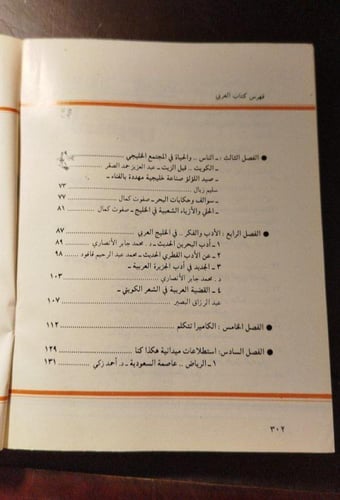 فهرس كتاب العربي
● الفصل الثالث : ـ الناس .. والحياة في المجتمع الخليجي
ـ الكويت .. قبل الزيت ـ عبد العزيز حمد الصقر
ـ صيد اللؤلؤ صناعة خليجية مهددة بالفناء ـ
سليم زبال ٧٣
ـ سوالف وحكايات البحر ـ صفوت كمال ٧٧
ـ الحلي والأزياء الشعبية في الخليج ـ صفوت كمال ٨١
● الفصل الرابع : الأدب والفكر .. في الخليج العربي ٨٧
١ ـ أدب البحرين الحديث ـ د . محمد جابر الأنصاري ٨٩
٢ ـ عن الأدب القطري الحديث ـ محمد عبد الرحيم قافود ٩٨
٣ ـ الجديد في أدب الجزيرة العربية ـ
د . محمد جابر الأنصاري ١٠٣
٤ ـ القضية العربية في الشعر الكويتي ـ
عبد الرزاق البصير ١٠٧
● الفصل الخامس : الكاميرا تتكلم ١١٢
● الفصل السادس : استطلاعات ميدانية هكذا كنا ١٢٩
١ ـ الرياض .. عاصمة السعودية ـ د . أحمد زكي ١٣١
٣٠٢